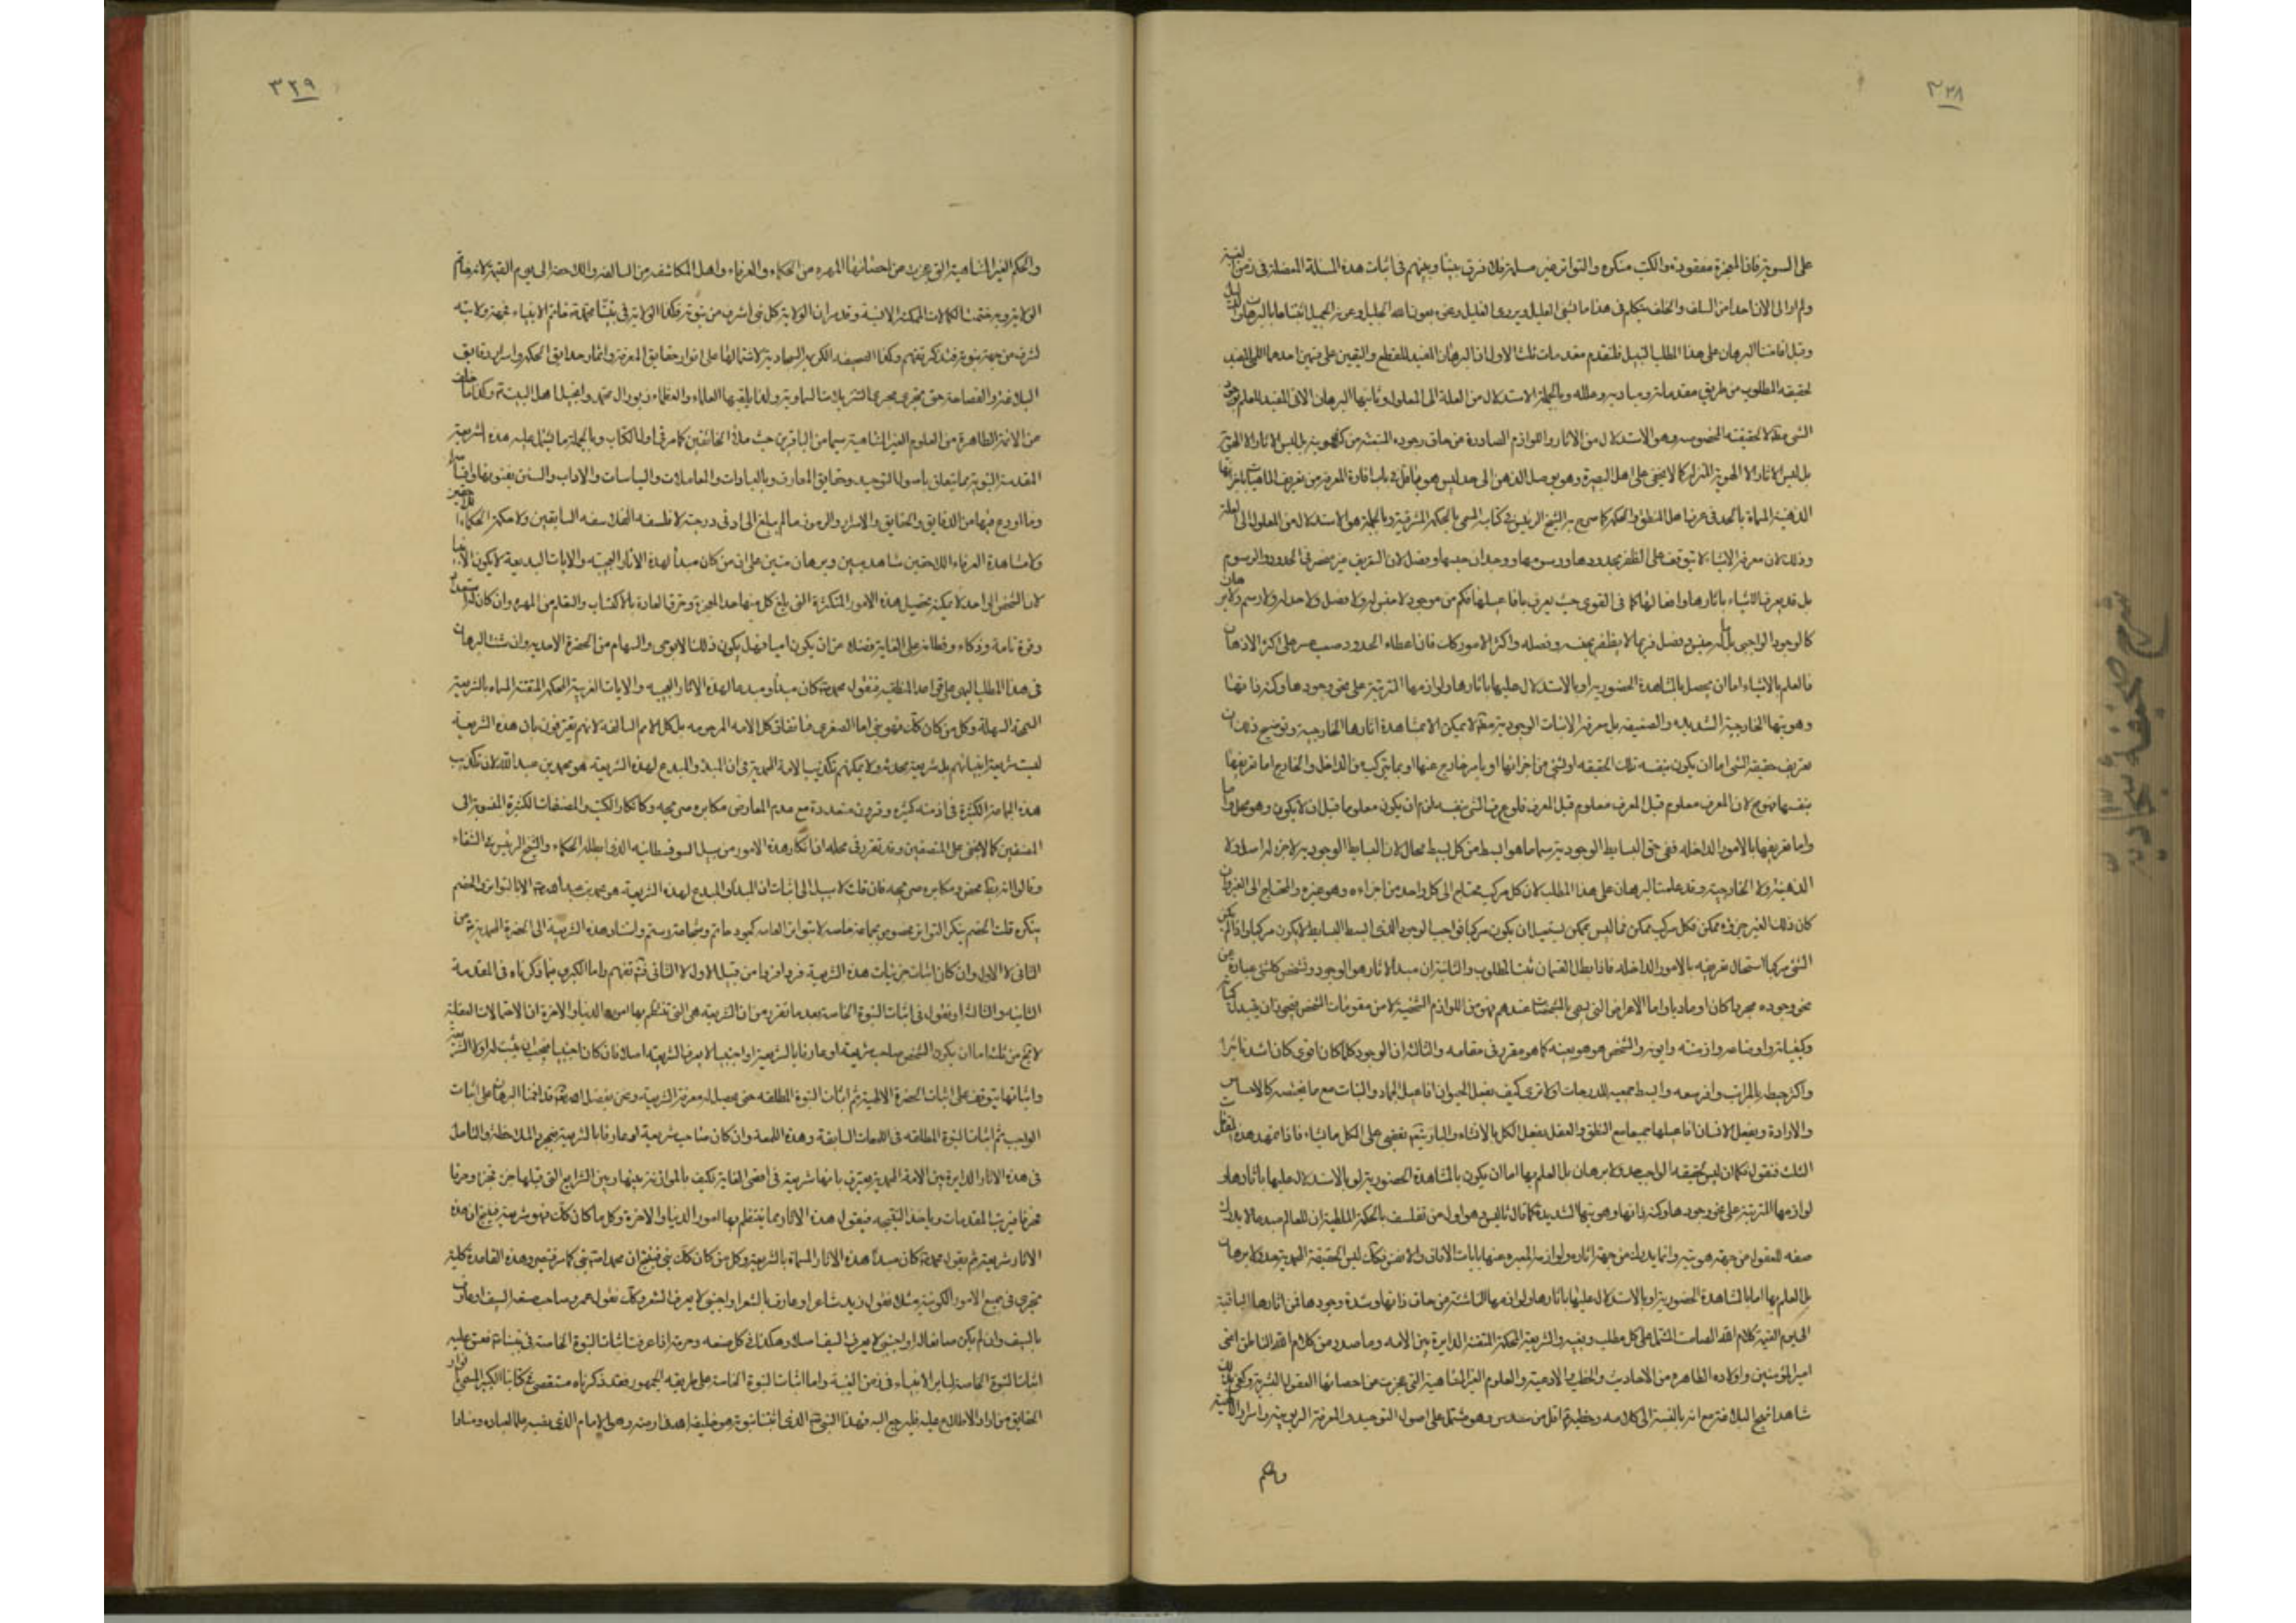 ٣٢٨
على السوية فان المعجزة مفقودة والكتب منكره والتواتر غير مسلم فلا فرق بيننا وبينهم في اثبات هذه المسئلة المعضلة في زمن الغيبة
ولم ار الى الان احدا من السلف والخلف يتكلم في هذا ما يشفي العليل ويروي الغليل ونحن بعون الله الجليل
وقبل اقامتنا البرهان على هذا المطلب النبيل فلنقدم مقدمات ثلث الاولى ان البرهان المفيد للقطع واليقين على قسمين احدهما اللمي المفيد
لحقيقة المطلوب من طريق مقدماته ومباديه وعلله وبالجملة الاستدلال من العلة الى المعلول وثانيهما البرهان الاني المفيد للعلم بوجود
الشيء لا لحقيقته المخصوصه وهو الاستدلال من الاثار واللوازم الصادرة من حاق وجوده
الذهنية المسماة بالحد في عرف اهل المنطق والحكمة كما صرح به الشيخ الرئيس في كتابه المسمى بالحكمة المشرقية وبالجملة هو الاستدلال من المعلول الى العلة
وذلك لان معرفة الاشياء لا تتوقف على الظفر بحدودها ورسومها ووجدان جنسها وفصلها لان التعريف غير منحصر في الحدود والرسوم
بل قد يعرف الاشياء باثارها وافعالها كما في القوى حيث يعرف بافاعيلها فكم من موجود لا جنس له ولا فصل ولا حد له ولا رسم ولا برهان
كالوجود الواجبي بل ما له جنس وفصل فربما لا يظفر بجنسه وفصله واكثر الامور كك فان اعطاء الحدود صعب عسر على اكثر الاذهان
فالعلم بالاشياء اما ان يحصل بالمشاهدة الحضورية او بالاستدلال عليها باثارها ولوازمها المترتبة على نحو وجودها وكنه ذاتها
وهويتها الخارجية الشديده والضعيفه بل معرفة الانيات الوجودية مطلقا لا يمكن الا بمشاهدة اثارها الخارجية وتوضيح ذلك ان
تعريف حقيقة الشيء اما ان يكون بنفسه تلك الحقيقه او بشيء من اجزائها او بامر خارج عنها او بما يتركب من الداخل والخارج اما تعريفها
بنفسها فممنوع لان المعرف معلوم قبل المعرف فلو عرف الشيء بنفسه لزم ان يكون معلوما قبل ان لا يكون وهو محال
واما تعريفها بالامور الداخله ففي حق البسايط الوجودية سيما ما هو ابسط من كل بسيط محال لان البسايط الوجودية لا جزء له اصلا لا
الذهنية ولا الخارجية وقد علمت البرهان على هذا المطلب لان كل مركب محتاج الى كل واحد من اجزاءه وهو غيره والمحتاج الى الغير وان
كان ذلك الغير جزءه ممكن فكل مركب ممكن فما ليس بممكن يستحيل ان يكون مركبا فواجب الوجود الذي ابسط البسايط لا يكون مركبا واذا لم يكن
الشيء مركبا استحال تعريفه بالامور الداخله فاذا بطل القسمان ثبت المطلوب والثانية ان مبدأ الاثار هو الوجود وتشخص كل شيء عبارة عن
نحو وجوده مجردا كان او ماديا واما الاعراض التي يسمى بالمشخصات عندهم فهو من اللوازم الشخصية لا من مقومات الشخص فيجوز ان يتبدل
وكيفياته واوضاعه وازمنته وايونه والشخص هو هو بعينه كما هو مقرر في مقامه والثالثة ان الوجود كلما كان اقوى كان اشد تاثيرا
واكثر حيطه بالمراتب واوفر سعه وابسط جمعيه للدرجات اولا ترى كيف يفعل الحيوان افاعيل الجماد والنبات مع ما يختصه كالاحساس
والارادة ويفعل الانسان افاعيلها جميعا مع النطق والعقل يفعل الكل بالانشاء والباري يفيض على الكل ما يشاء فاذا تمهد هذه المقدمات
الثلث فنقول فكما ان ليس لحقيقة الواجب حد ولا برهان بل العلم بها اما ان يكون بالمشاهدة الحضورية او بالاستدلال عليها باثارها و
لوازمها المترتبة على نحو وجودها وكنه ذاتها وهويتها الشديدة كما قال ثاليس وهو اول من تفلسف بالحكمة الملطية ان للعالم مبدعا لا يدرك
صفته العقول من جهة هويته وانما يدرك من جهة اثاره ولوازمه المعبره عنها بايات الافاق والانفس فكك ليس لحقيقة المحمدية حد ولا برهان
بل العلم بها اما بالمشاهدة الحضورية او بالاستدلال عليها باثارها ولوازمها الناشئة من حاق ذاتها وشدة وجودها فمن اثارها الباقية
الى يوم القيمة كلام الله الصامت المشتمل على كل مطلب ونفيسه والشريعة المحكمة المتقنة الدايرة بين الامه وما صدر من كلام الله الناطق اعني
امير المؤمنين واولاده الطاهره من الاحاديث والخطب والادعية والعلوم الغير المتناهية التي عجزت من احصائها العقول البشرية وكفى بذلك
شاهدا نهج البلاغة مع انه بالنسبة الى كلامه وخطبه اقل من سدس وهو مشتمل على اصول التوحيد والمعرفة الربوبية واسرار
والحكم
٣٢٩
والحكم الغير المتناهية التي عجزت من احصائها المهره من الحكماء والعرفاء واهل المكاشفه من السالفه واللاحقه الى يوم القيمة لانه خاتم
الولاية وبه ختمت الكمالات الممكنة الانسية وقد مر ان الولاية كل نبي اشرف من نبوته فكذا الولاية في نبينا محمد خاتم الانبياء فجهة ولايته
اشرف من جهة نبوته فتذكر تفهم وكذا الصحيفة الكريمة السجادية لاشتمالها على انوار حقايق المعرفة واثمار حدايق الحكمة واسرار دقايق
البلاغة والفصاحة حتى تجري مجرى التنزيلات السماوية ولذا يلقبها العلماء والعظماء بزبور ال محمد وانجيل اهل البيت وكذا ما
من الائمة الطاهرة من العلوم الغير المتناهية سيما من الباقرين حيث ملأ الخافقين كما مر في اول الكتاب وبالجملة ما يشتمل عليه هذه الشريعة
المقدسة النبوية مما يتعلق باصول التوحيد وحقايق المعارف وبالعبادات والمعاملات والسياسات والاداب والسنن
وما اودع فيها من الدقايق والحقايق والاسرار والرموز ما لم يبلغ الى ادنى درجته لا فلسفه الفلاسفه السابقين ولا حكمة الحكماء اللاحقين
ولا مشاهدة العرفاء اللاحقين شاهد مبين وبرهان متين على ان من كان مبدأ لهذه الاثار العجيبه والايات البديعة لا يكون الا نبيا
لان الشخص الواحد لا يمكنه تحصيل هذه الامور المتكثرة التي بلغ كل منها حد المعجزة وخرق العادة بالاكتساب والتعلم من المهره وان كان له
وقوة تامة وذكاء وفطانة على الغاية فضلا عن ان يكون اميا فهل يكون ذلك الا بوحي والهام من الحضرة الاحدية وان شئت البرهان
في هذا المطلب البهي على قواعد المنطقيه فنقول محمد كان مبدأ ومبدعا لهذه الاثار العجيبه والايات الغريبة المحكمة المتقنة المسماه بالشريعة
السمحة السهلة وكل من كان كك فهو نبي اما الصغرى فباتفاق كل الامه المرحومه بل كل الامم السالفة لانهم يعترفون بان هذه الشريعة
ليست شريعة انبيائهم بل شريعة محدثه ولا يمكنهم تكذيب الامة المحمدية في ان المبدأ والمبدع لهذه الشريعة هو محمد بن عبد الله لان تكذيب
هذه الجماعة الكثيرة في ازمنه كثيره وقرون متعددة مع عدم المعارض مكابره صريحه وكانكار الكتب والمصنفات الكثيرة المنسوبة الى
المصنفين كما لا يخفى على المنصفين وقد تقرر في محله ان انكار هذه الامور من سبيل السوفسطائيه الذي ابطله الحكماء والشيخ الرئيس في الشفاء
وقالوا انه محض مكابره صريحه فان قلت لا سبيل الى اثبات ان المبدأ والمبدع لهذه الشريعة هو محمد بن عبد الله الا بالتواتر والخصم
ينكره قلت الخصم ينكر التواتر مخصوص بجماعة خاصه لا بتواتر العامه كجود حاتم وشجاعة رستم واسناد هذه الشريعة الى الحضرة المحمدية من
الثاني لا الاول وان كان اثبات جزئيات هذه الشريعة فردا فردا من قبيل الاول لا الثاني فتفهم واما الكبرى فبما ذكرناه في المقدمة
الثانية والثالثة او نقول في اثبات النبوة الخاصة بعد ما تقرر من ان الشريعة هي التي تنتظم بها امور الدنيا والاخرة ان الاحتمالات العقلية
لا يخ من ثلث اما ان يكون الشخص صاحب شريعة او عارفا بالشريعة او اجنبيا لا يعرف الشريعة اصلا فان كان اجنبيا فيجب ان يثبت له اولا الشريعة
واثباتها يتوقف على اثبات الحضرة الالهية ثم اثبات النبوة المطلقه حتى يحصل له معرفة الشريعة ونحن بفضل الله قد اقمنا البرهان على اثبات
الواجب ثم اثبات النبوة المطلقه في اللمعات السابقة وهذه اللمعة وان كان صاحب شريعة او عارفا بالشريعة فبمجرد الملاحظة والتامل
في هذه الاثار الدايرة بين الامة المحمدية يعترف بانها شريعة في اقصى الغاية فكيف بالموازنة بينها وبين الشرايع التي قبلها جزء فجزء وحرفا
فحرفا فيرتب المقدمات وياخذ النتيجه فيقول هذه الاثار مما ينتظم بها امور الدنيا والاخرة وكل ما كان كك فهو شريعة فينتج ان هذه
الاثار شريعة ثم يقول محمد كان مبدأ هذه الاثار المسماة بالشريعة وكل من كان كك نبي فينتج ان محمد نبي كما مر وهذه القاعدة كلية
تجري في جميع الامور الكونية مثلا نقول زيد شاعر او عارف بالشعر او اجنبي لا يعرف الشعر وكك نقول عمرو صاحب صنعة السيف او عارف
بالسيف وان لم يكن صانعا له او اجنبي لا يعرف السيف اصلا وهكذا في كل صنعه وحرفة اذا عرفت اثبات النبوة الخاصة في نبينا فقس عليه
اثبات النبوة الخاصة لسائر الانبياء في زمن الغيبة واما اثبات النبوة الخاصة على طريقة الجمهور فقد ذكرناه مستقصى في كتابنا الكبير المسمى بانوار
الحقايق من اراد الاطلاع عليه فليرجع اليه فهذا النبي الذي اثبتنا نبوته هو خليفة الله في ارضه وهو الامام الذي
شرح صحيفه سجاديه